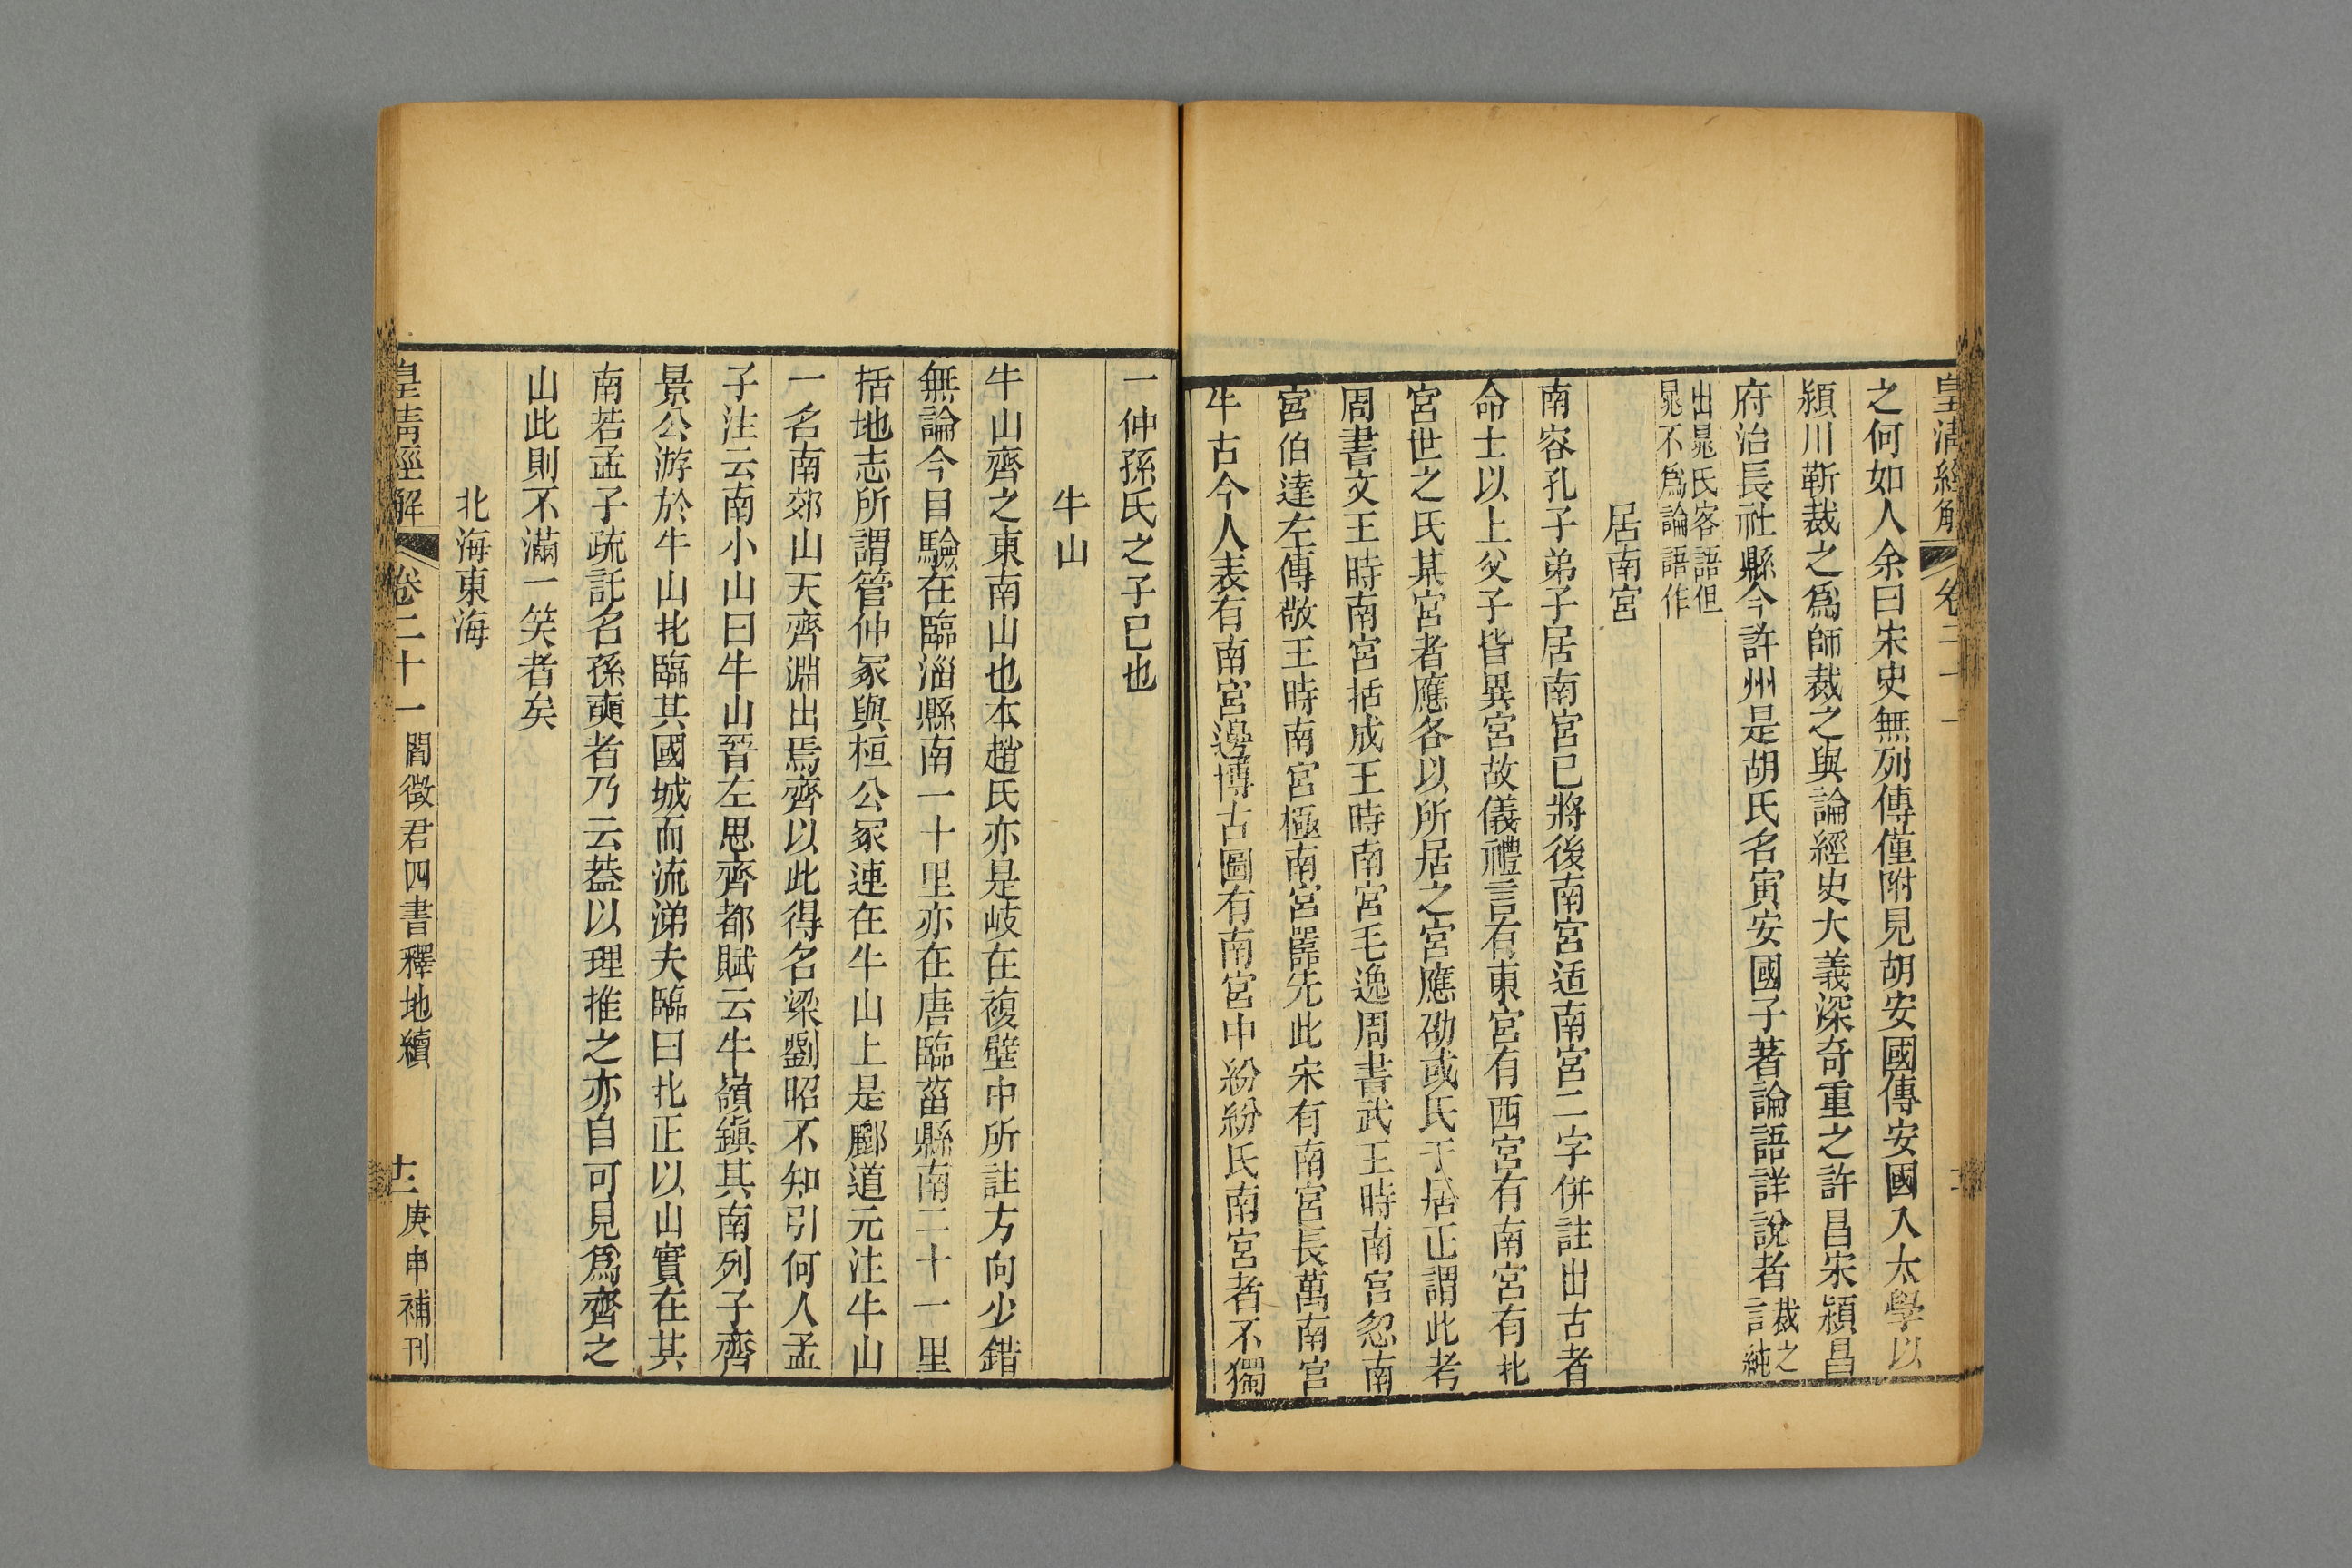 皇清經解
卷二十一
之何如人余曰宋史無列傳僅附見胡安國傳安國入太學以
潁川靳裁之為師裁之與論經史大義深奇重之許昌宋潁昌
府治長社縣今許州是胡氏名寅安國子著論語詳說者裁之
言純
出晁氏客語但
晁不為論語作
居南宮
南容孔子弟子居南宮已將後南宮适南宮二字併註出古者
命士以上父子皆異宮故儀禮言有東宮有西宮有南宮有北
宮世之氏某宮者應各以所居之宮應劭或氏于居正謂此考
周書文王時南宮括成王時南宮毛逸周書武王時南宮忽南
宮伯達左傳敬王時南宮極南宮嚚先此宋有南宮長萬南宮
牛古今人表有南宮邊博古圖有南宮中紛紛氏南宮者不獨
一仲孫氏之子已也
牛山
牛山齊之東南山也本趙氏亦是岐在複壁中所註方向少錯
無論今目驗在臨淄縣南一十里亦在唐臨菑縣南二十一里
括地志所謂管仲冢與桓公冢連在牛山上是酈道元注牛山
一名南郊山天齊淵出焉齊以此得名梁劉昭不知引何人孟
子注云南小山曰牛山晉左思齊都賦云牛嶺鎮其南列子齊
景公游於牛山北臨其國城而流涕夫臨曰北正以山實在其
南若孟子疏託名孫奭者乃云蓋以理推之亦自可見為齊之
山此則不滿一笑者矣
北海東海
皇清經解
卷二十一
閻徵君四書釋地續
庚申補刊